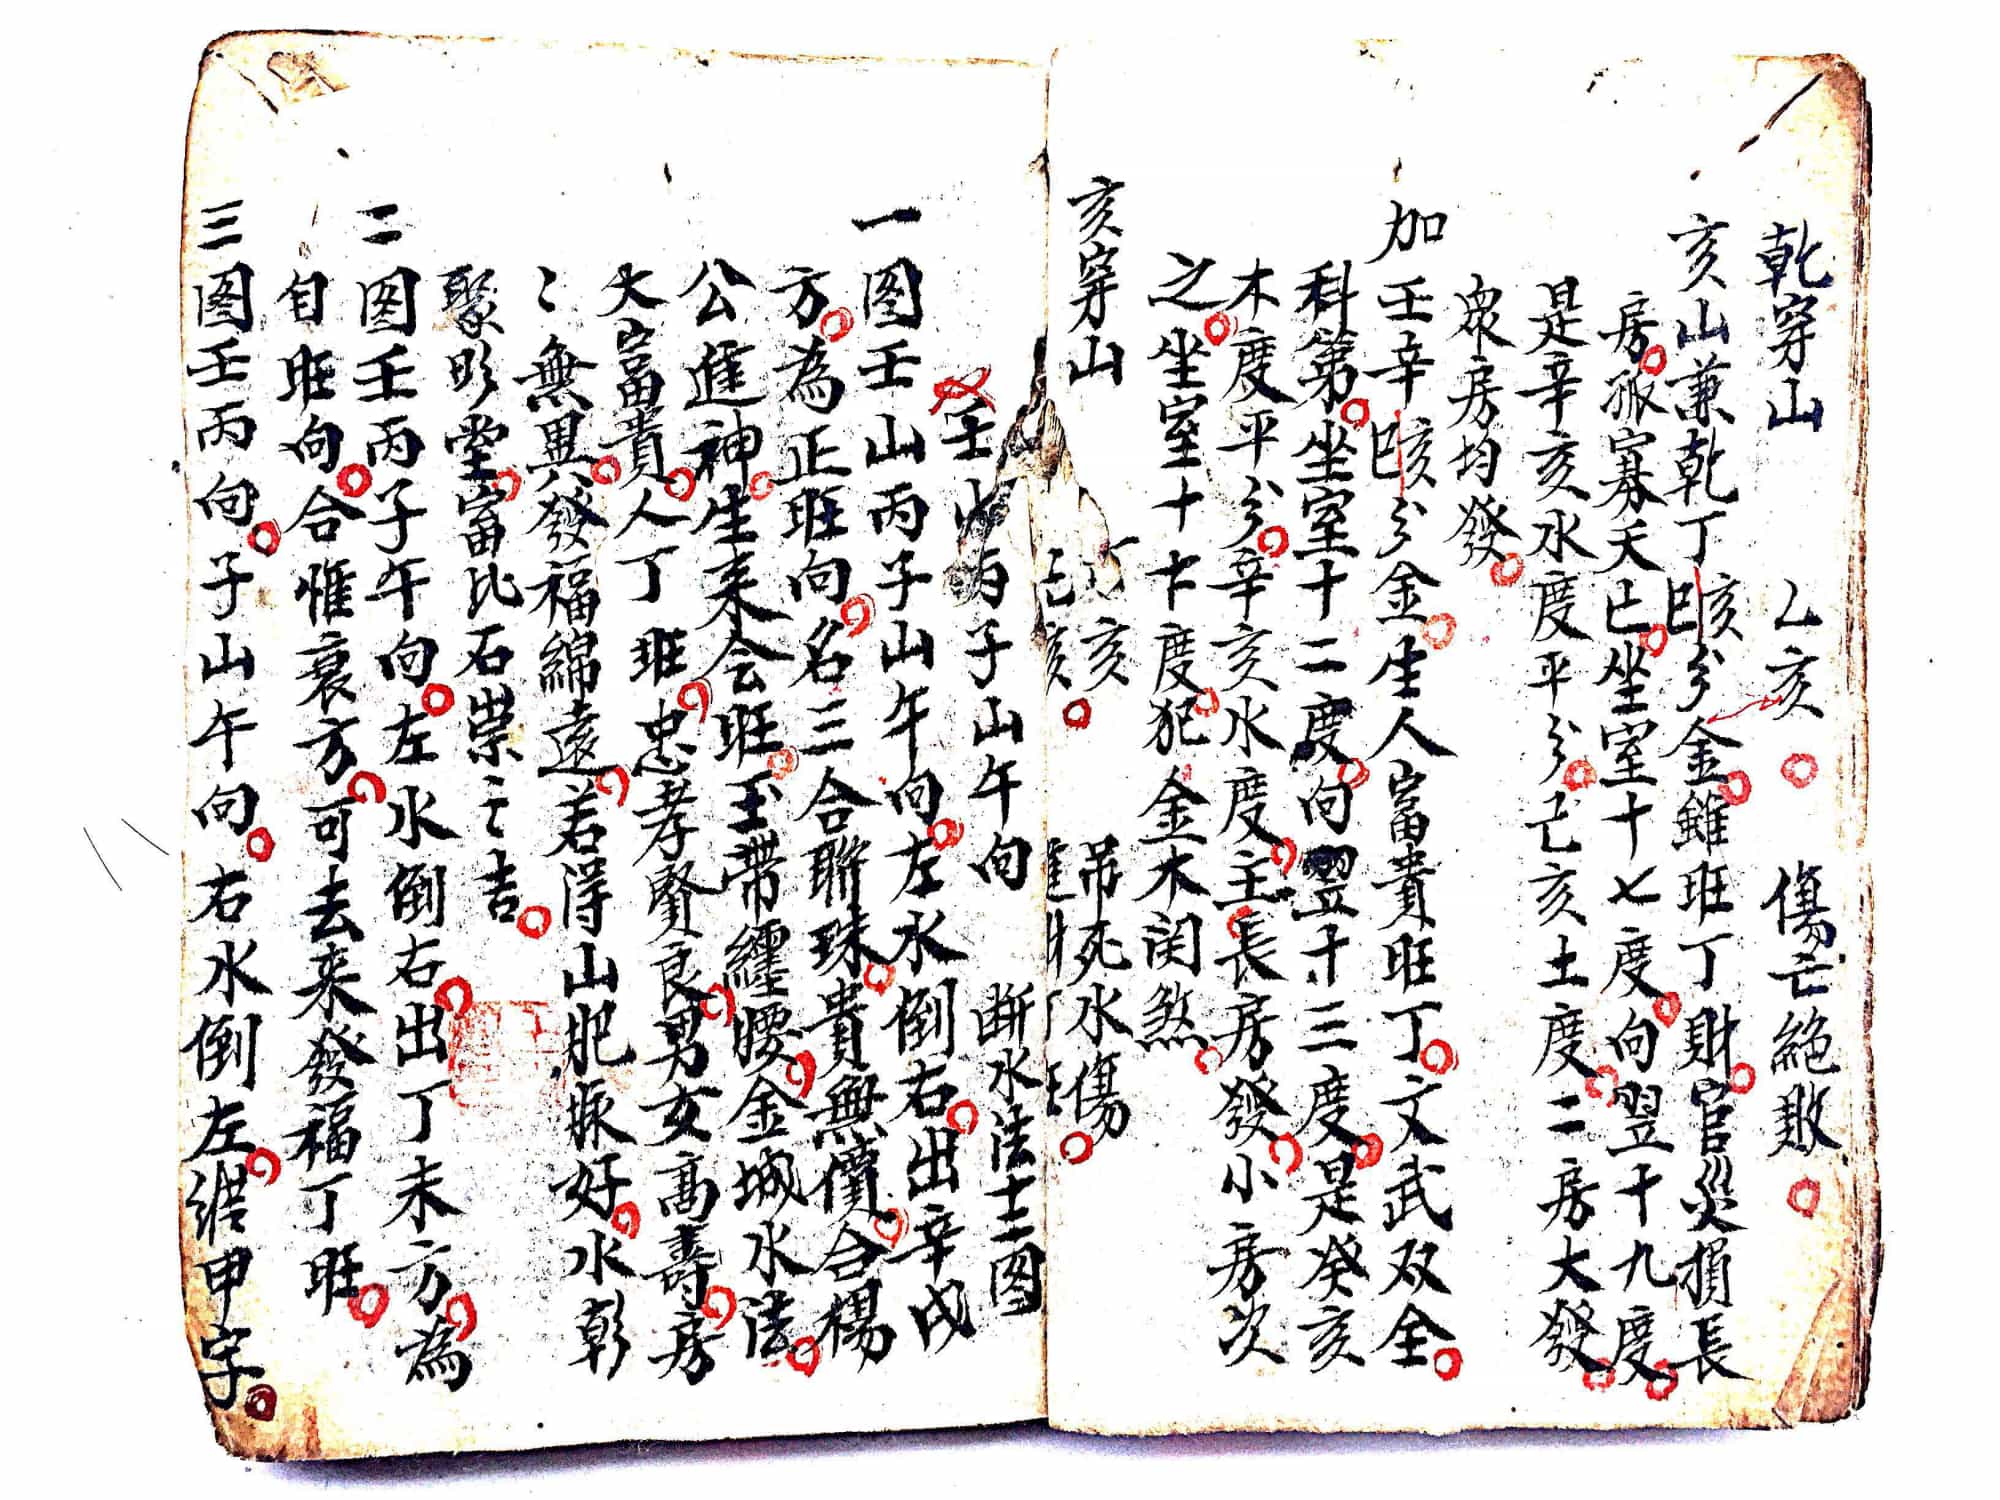 乾穿山 乙亥 傷亡絶敗
亥山兼乾丁巳亥分金雖旺丁財官災損長
房孤寡夭亡坐室十七度向翌十九度
是辛亥水度平分己亥土度二房大發
衆房均發
加壬辛巳亥分金生人富貴旺丁文武双全
科第坐室十二度向翌十三度是癸亥
木度平分辛亥水度主長房發小房次
之坐室十七度犯金木関煞
亥穿山 亥 吊死水傷
亥
壬山丙子山午向 断水法十二图
一图壬山丙子山午向左水倒右出辛戌
方為正旺向名三合聯珠貴無價合楊
公進神生来会旺玉帶纒腰金城水法
大富貴人丁旺忠孝賢良男女高壽房
〻無異發福綿遠若得山肥脉好水彰
聚明堂富比石崇之吉
二图壬丙子午向左水倒右出丁未方為
自旺向合惟衰方可去来發福丁旺
三图壬丙向子山午向右水倒左従甲字